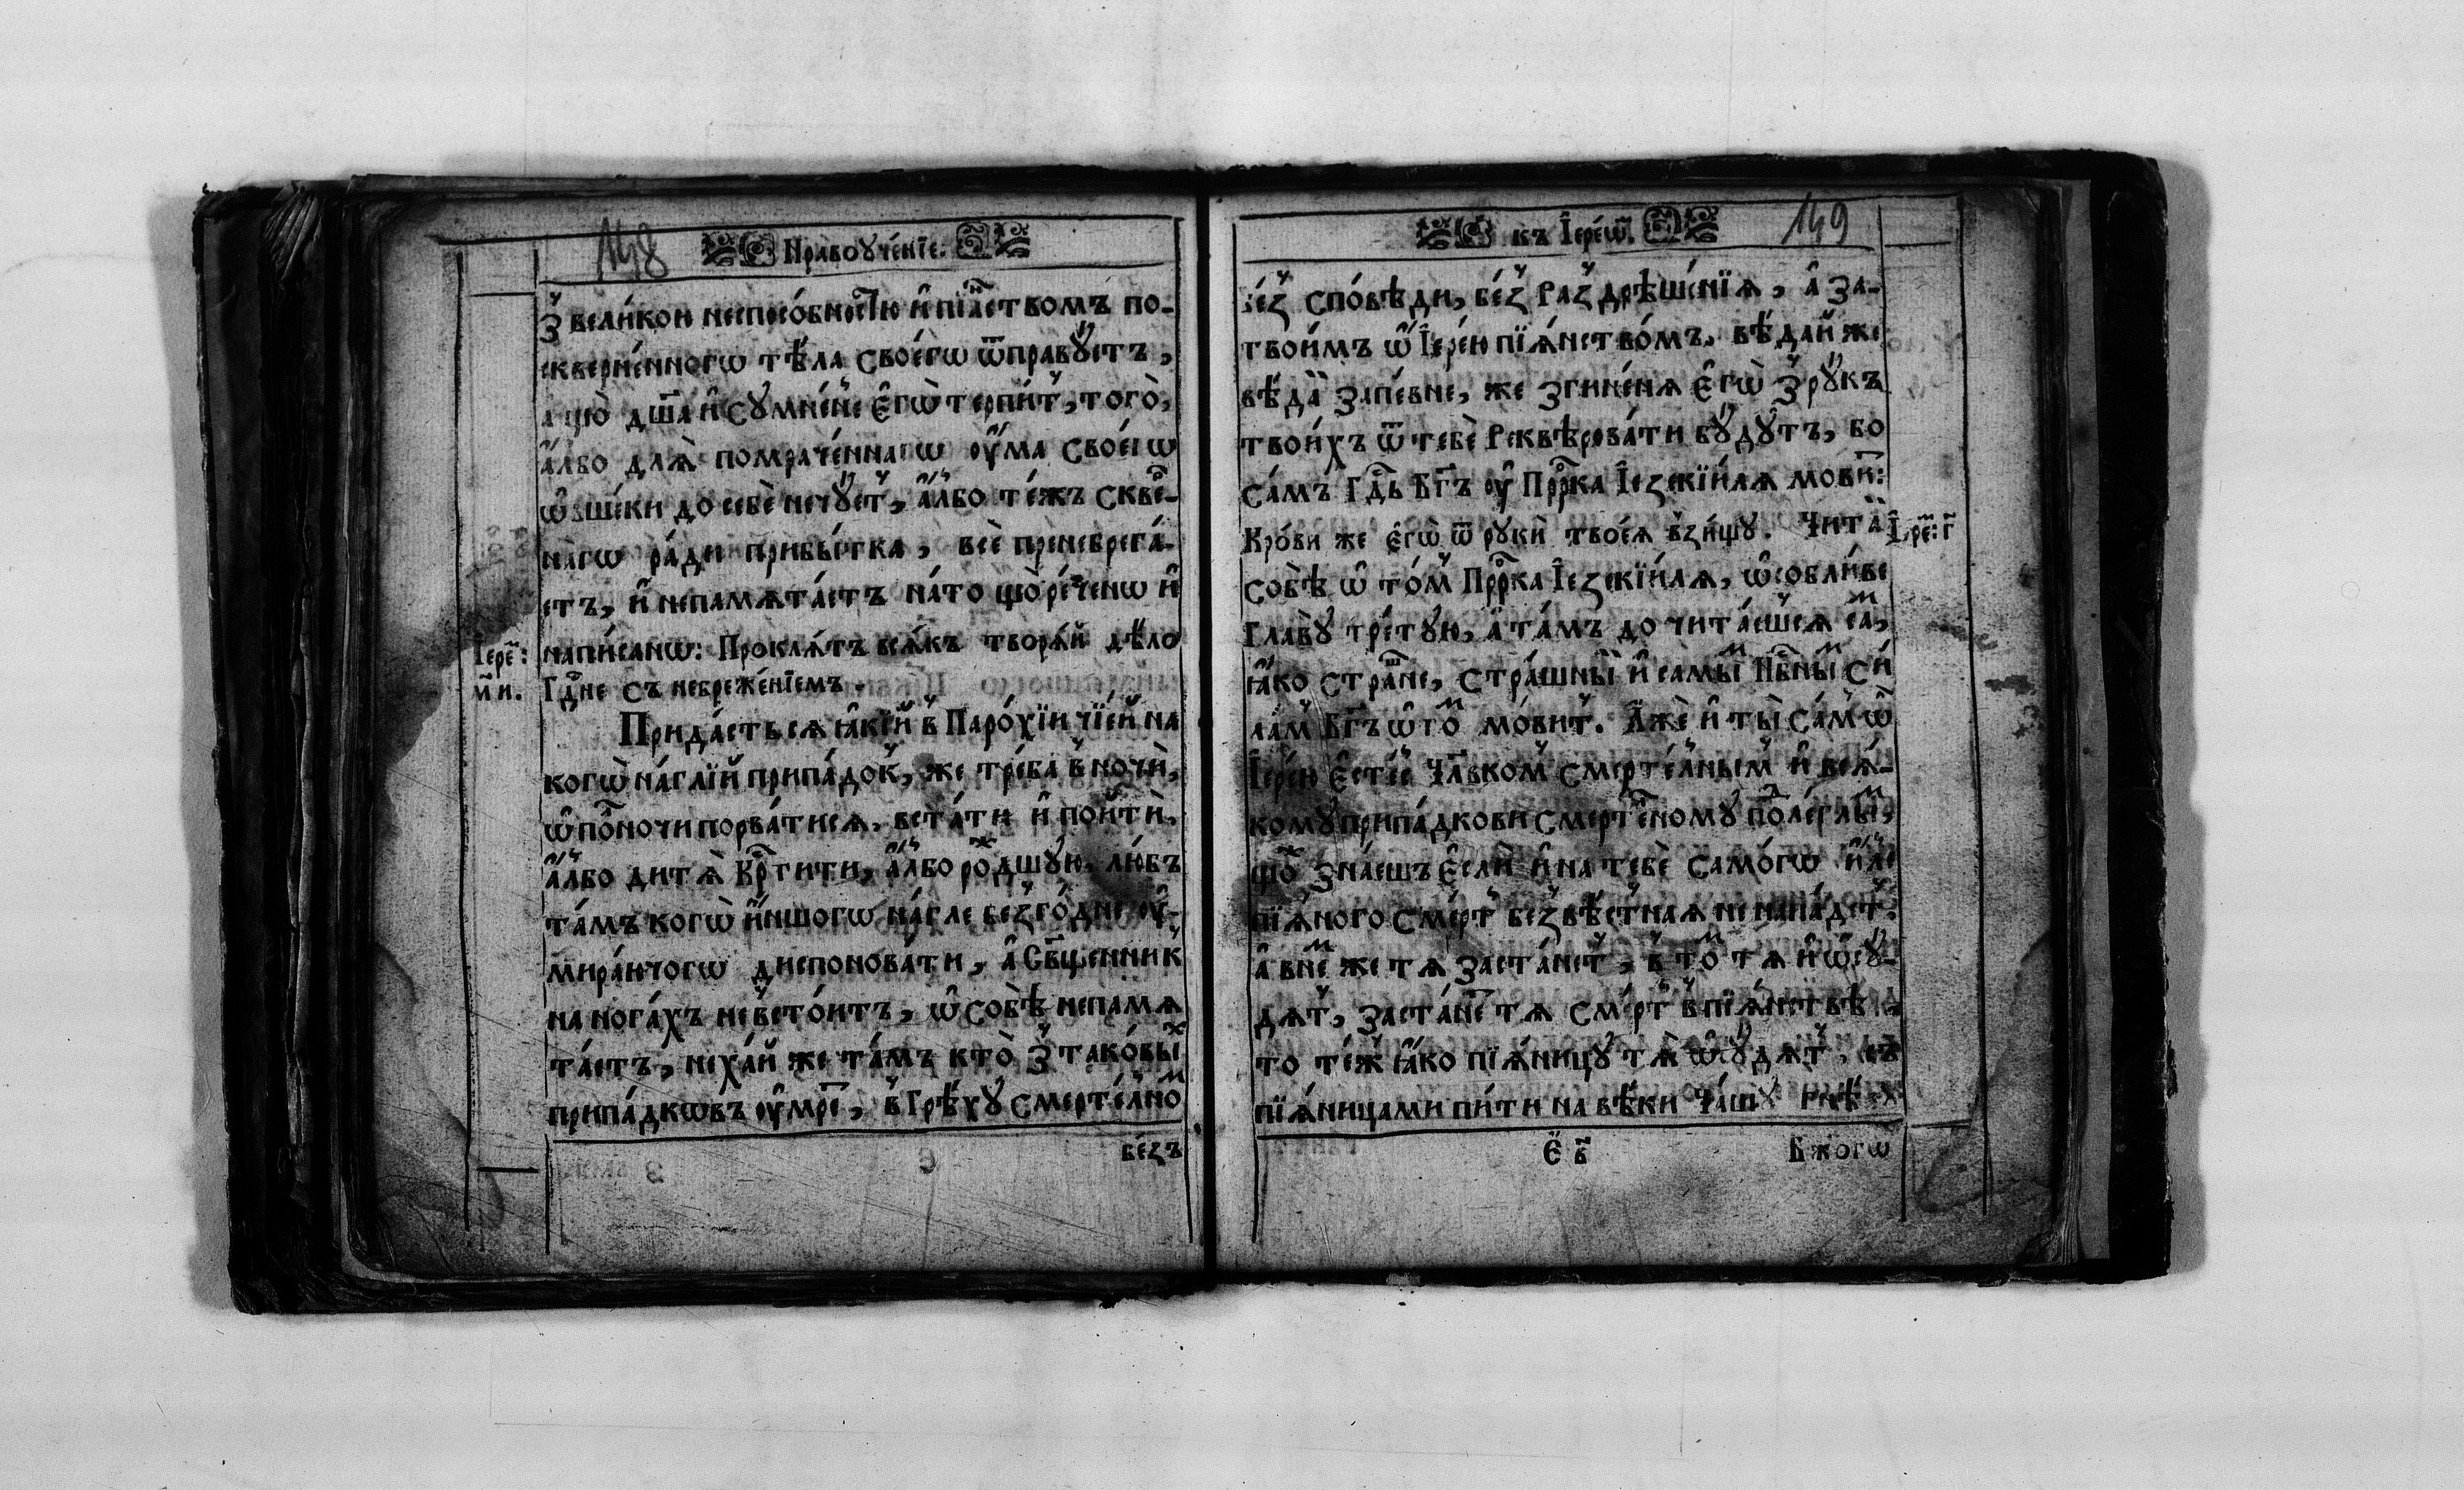 148
Нравоꙋче́нїе.
З̾ вели́кои неспосо́бностїю и҆ пїа́нствомъ по-
скверне́нногѡ тѣ́ла своегѡ̀ ѿправꙋ́етъ,
а що̀ дш҃а и҆ сꙋмне́н̾е є҆гѡ̀ терпи́т̾, того̀,
а҆́лбо длѧ̀ помраче́ннагѡ оу҆ма̀ своегѡ̀
до себѐ не чꙋ́ет̾, а҆́лбо те́жъ сквє́-
рнагѡ ра́ди прибы́тка, всѐ пренебрега́-
етъ, и҆ непамѧта́етъ на́то що̀ ре́ченѡ и҆
напи́санѡ: Проклѧ́тъ всѧ́къ творѧ́й дѣ́ло
Гдⷭ҇не съ небреже́нїемъ.
Іере҃:
м҃и.
Прида́стьсѧ ꙗ҆кі́й в̾ Паро́хїи чїе́й на
когѡ̀ на́глїй припа́док̾, же тре́ба в̾ ночѝ,
ѡ҆ по́лночи порва́тисѧ, вста́ти и҆ пойтѝ,
а҆́лбо дитѧ̀ Крⷭ҇тити, а҆́лбо ро́ждшꙋю, лю́бъ
та́мъ когѡ̀ и҆́ншогѡ на́гле без̾го́дне оу҆-
мира́ючогѡ диспонова́ти, а҆ Сщ҃е́нник̾
на нога́хъ не в̾сто́итъ, ѡ҆ собѣ̀ непамѧ
та́етъ, неха́й же та́мъ кто̀ з̾ тако́вы́ⷯ
припа́дкѡвъ оу҆мре́т̾, в̾ грѣхꙋ̀ смерте́лноⷨ
бе́зъ
къ І҆ере́ѡⷨ.
149
бе́з̾ спо́вѣди, бе́з̾ раз̾дрѣше́нїѧ, а҆ за-
твои́мъ ѡ҆ І҆ере́ю пїѧ́нство́мъ, вѣ́дай же
вѣ́дай запе́вне, же згине́нѧ є҆гѡ̀ з̾ рꙋ́къ
твои́хъ ѿ тебѐ реквѣрова́ти бꙋ́дꙋтъ, бо
са́мъ Гдⷭ҇ь Бг҃ъ оу҆ Прⷪ҇рка І҆езекїи́лѧ мо́вит̾:
Кро́ви же є҆гѡ̀ ѿ рꙋкѝ твоеѧ̀ вз̾ищꙋ̀. Чита́й
І҆ере҃: г҃
собѣ̀ ѡ҆ то́м̾ Прⷪ҇рка І҆езекїи́лѧ, ѡ҆собли́ве
Главꙋ̀ тре́тꙋю, а҆ та́мъ до чита́ешсѧ са́мъ,
ꙗ҆́ко стра́шне, стра́шныⷨ и҆ самы́ⷨ Нб҃ныⷨ си́
лаⷨ Бг҃ъ ѡ҆ то́ⷨ мо́вит̾. А҆жѐ и҆ ты̀ са́мъ ѡ҆
І҆ере́ю є҆сте́с̾ чл҃вком̾ смерте́лным̾ и҆ всѧ́-
комꙋ припа́дкови смерте́лномꙋ по́длеглы́ⷨ,
що́ж̾ зна́ешъ є҆слѝ и҆ на тебѐ само́гѡ и҆ле
пїѧ́ного сме́рт̾ без̾вѣ́стнаѧ не напа́дет̾.
а҆ в̾ че́м же тѧ заста́нет̾, в̾ то́ⷨ тѧ и҆ ѡ҆сꙋ́-
дѧт̾, заста́нет̾ тѧ сме́рт̾ в̾ пїѧ́нствѣ,
то те́ж̾ ꙗ҆́ко пїѧ́ницꙋ тѧ̀ ѡ҆сꙋ́дѧт̾, съ
пїѧ́ницами пи́ти на вѣ́ки Ча́шꙋ гнѣ́вꙋ
Є҆ в҃
Бж҃огѡ